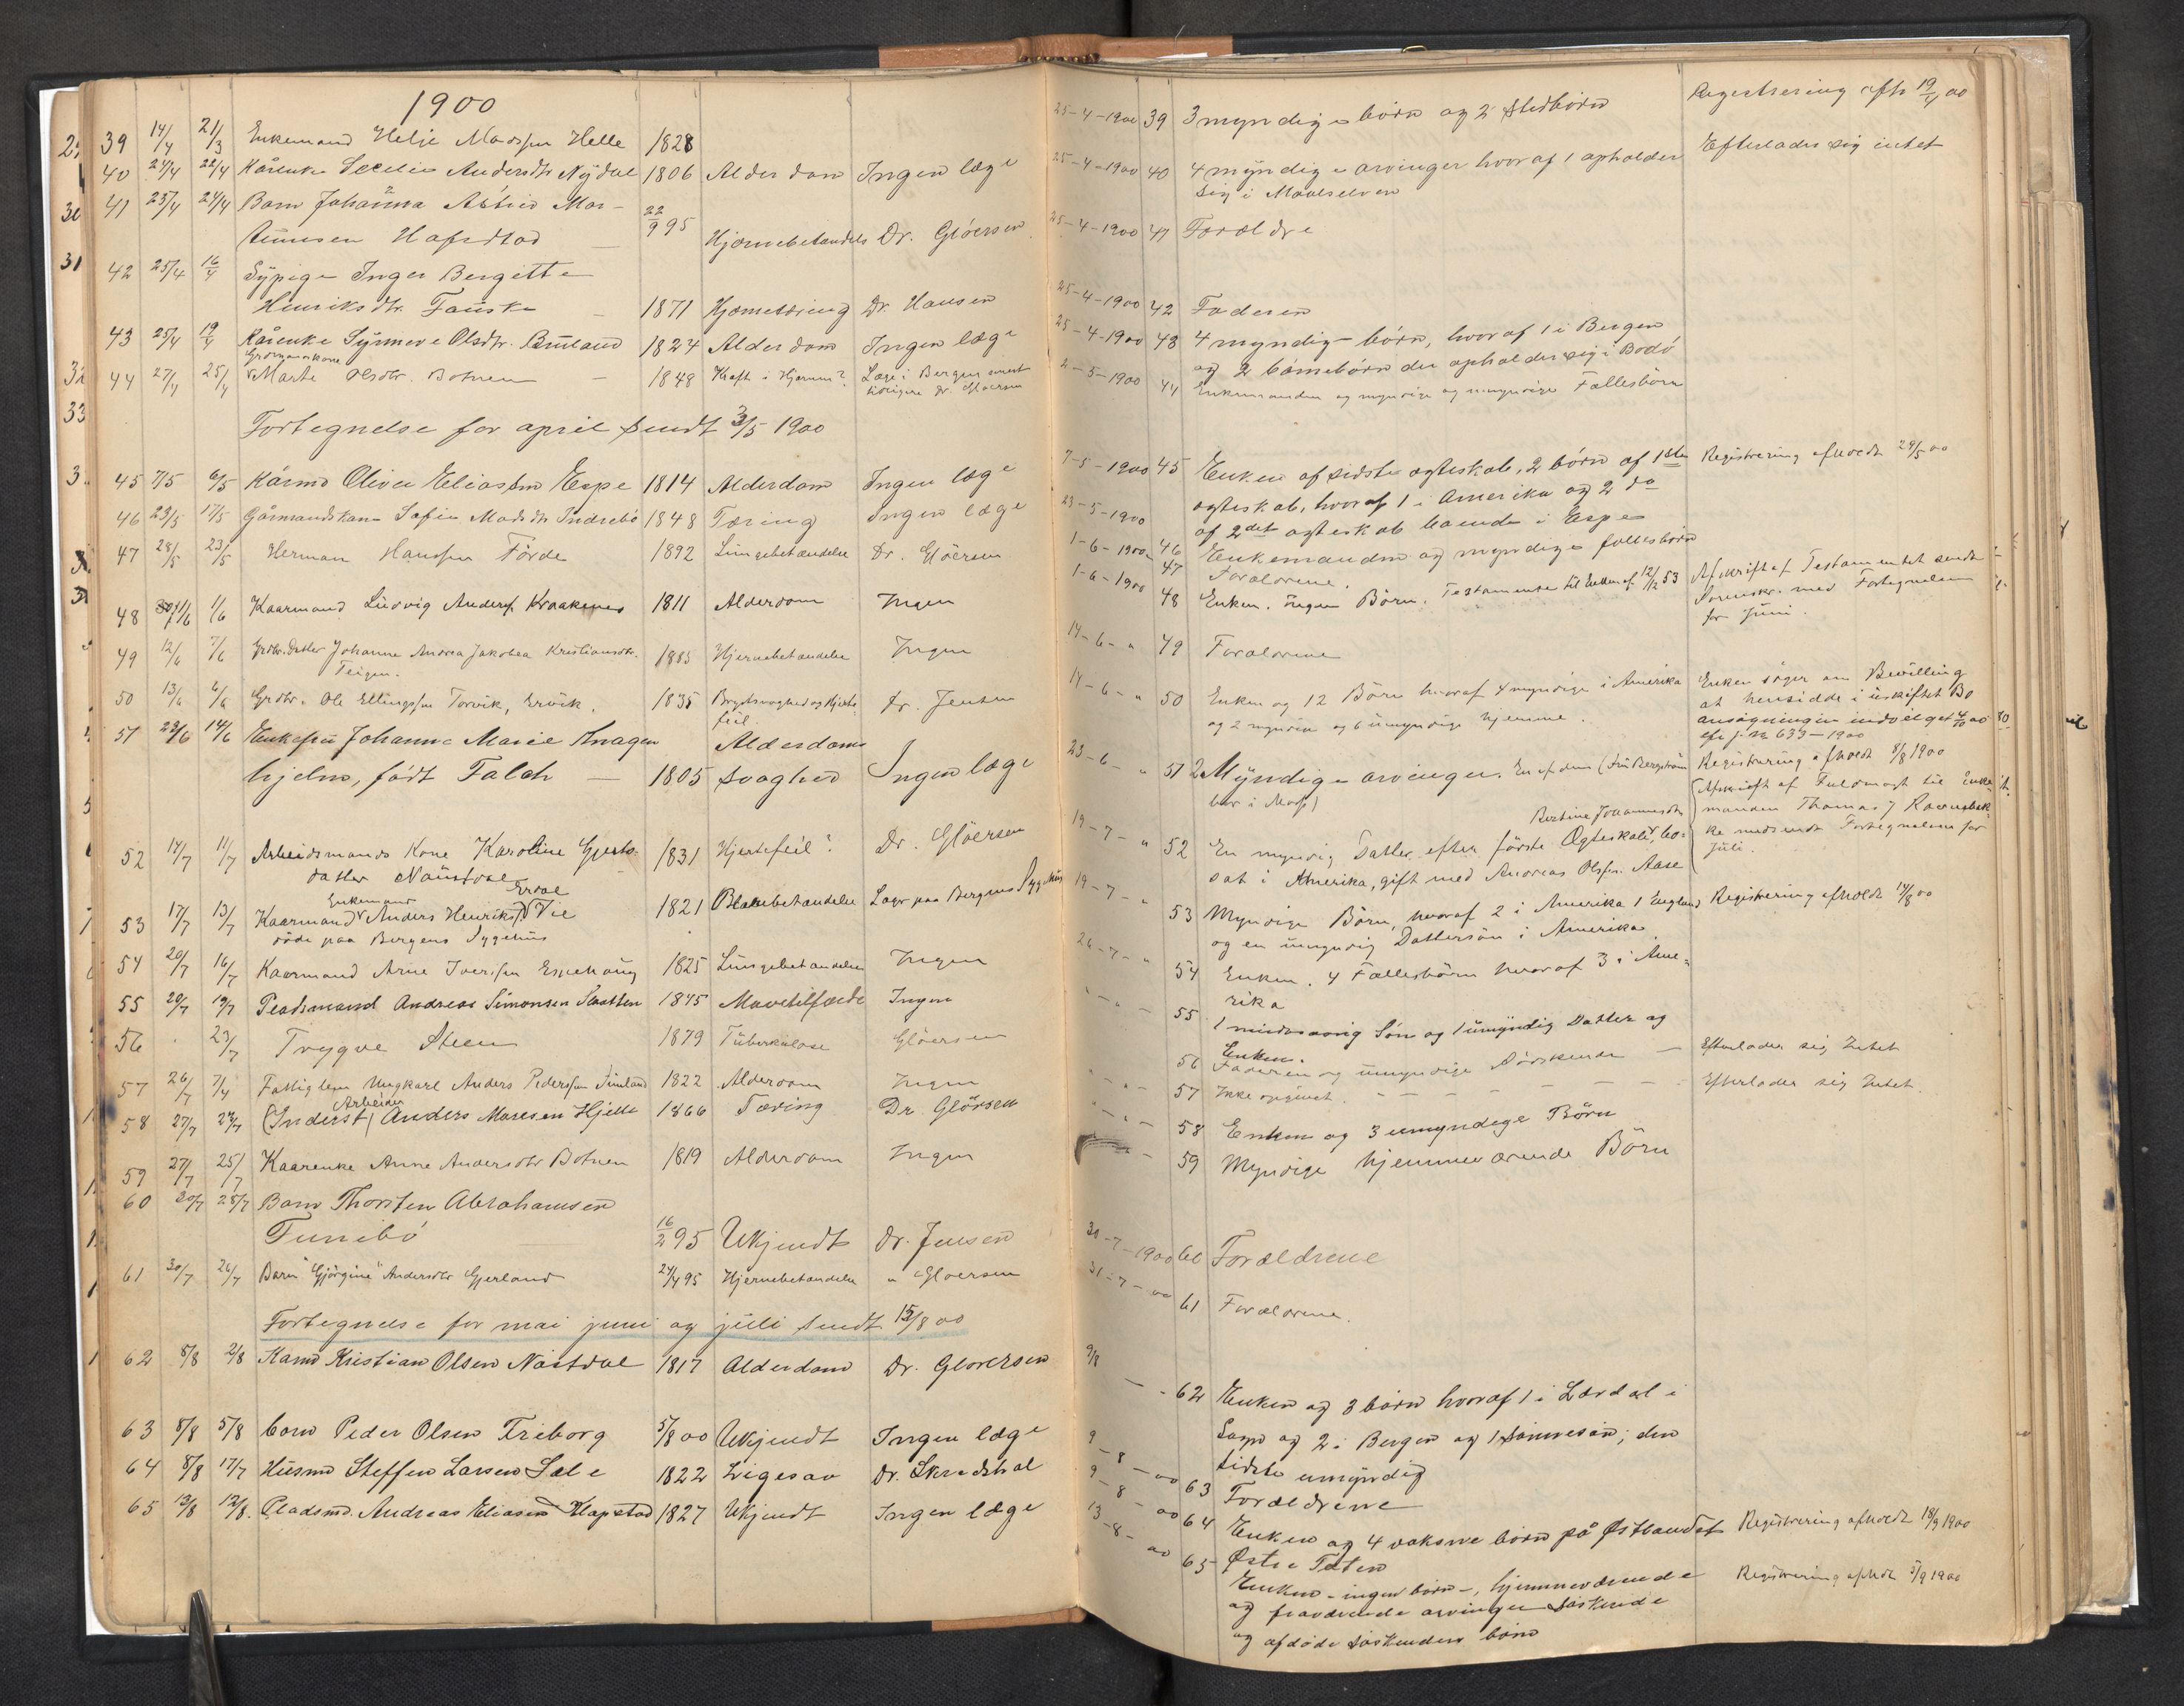 1900
39 14/4 21/3 Enkemand Helje Madssen Helle 1828
40 24/4 22/4 Kårenke Secelie Andersdtr Nÿdal 1806 Alderdom Ingen læge
41 25/4 24/4 Barn Johanna Astrid Mor-
tensen Hafstad — 22/9 95 Hjernebetændels Dr. Glöersen
42 25/4 16/4 Sÿpige Inger Bergitte
Henriksdtr. Fauske — 1871 Hjernetæring Dr. Hansen
43 25/4 19/4 Kårenke Synneve Olsdtr. Bruland 1824 Alderdom Ingen læge
Grdmanskone
44 27/4 25/4 Marte Olsdtr. Botnen — 1848 Kræft i Hjernen? Læge i Bergen
tidligere Dr. Gloersen
Fortegnelse for april sendt 3/5 1900
45 7/5 6/5 Kårmd Oliver Eliassen Espe 1814 Alderdom Ingen læge
46 23/5 17/5 Gårmandskone Sofie Madsdtr Indrebö 1848 Tæring Ingen læge
47 28/5 23/5 Herman Hanssen Förde 1892 Lungebetændelse Dr. Glöersen
48 11/6 1/6 Kaarmand Ludvig Anders. Kraakenes 1811 Alderdom Ingen
49 12/6 7/6 Grdbr.datter Johanne Andrea Jakobea Kristiansdtr. 1885 Hjernebetændelse Ingen
Teigen.
50 13/6 6/6 Grdbr. Ole Ellingssen Torvik, Ervik. 1835 Brystsvaghed og Hjerte- Dr. Jensen
feil
51 23/6 14/6 Enkefru Johanne Marie Knagen Alderdoms
hjelm, född Falch — 1805 svaghed Ingen læge
52 14/7 11/7 Arbeidsmands Kone Karoline Gjerts- 1831 Hjertefeil? Dr. Glöersen
datter Naustdal
Enkemand Erdal
53 17/7 13/7 Kaarmand Anders Henriks. Vie 1821 Blærebetændelse Læge paa Bergens Sygehus
döde paa Bergens Sygehus
54 20/7 16/7 Kaarmand Arne Iversen Espehaug 1825 Lungebetændelse Ingen
55 20/7 19/7 Pladsmand Andreas Simonsen Slaatten 1845 Mavetilfælde Ingen
56 23/7 Trygve Steen 1879 Tuberkulose Glöersen
57 26/7 7/4 Fattiglem Ungkarl Anders Pederssen Sunland 1822 Alderdom Ingen
Arbeider
58 27/7 24/7 (Inderst) Anders Maresen Hjelle 1866 Tæring Dr. Glörsen
59 27/7 25/7 Kaarenke Anne Andersdtr Botnen 1819 Alderdom Ingen
60 30/7 28/7 Barn Thorsten Abrahamsen
Funibö 16/2 95 Ukjendt Dr. Jensen
61 30/7 26/7 Barn "Gjörgine" Andersdtr Gjerland 24/4 95 Hjernebetændelse " Gloersen
Fortegnelse for mai juni og juli sendt 15/8 00
62 8/8 2/8 Karmd Kristian Olsen Nöstdal 1817 Alderdom Dr. Gloersen
63 8/8 5/8 barn Peder Olsen Friborg 5/8 00 Ukjendt Ingen læge
64 8/8 17/7 Husmd Steffen Larsen Sæle 1822 Ligesaa Dr. Skredsbal
65 13/8 12/8. Pladsmd. Andreas Eliasen Hapstad 1827 Ukjendt Ingen læge
25-4-1900 39 3 myndige börn og 2 stedbörn Registrering afh. 19/4 00
25-4-1900 40 4 myndige arvinger hvoraf 1 opholder Efterlader sig intet
sig i Maalselven
25-4-1900 41 Forældre
25-4-1900 42 Faderen
25-4-1900 43 4 myndige börn, hvoraf 1 i Bergen
og 2 börnebörn der opholder sig i Bodö
2-5-1900 44 Enkemanden og myndige og umyndige Fællesbörn
7-5-1900 45 Enken af sidste ægteskab, 2 börn af 1ste Registrering afholdt 29/5 00
ægteskab, hvoraf 1 i Amerika og 2 do
af 2det ægteskab boende i Espe
23-5-1900 46 Enkemanden og myndige fællesbörn
1-6-1900 47 Forældrene.
1-6-1900 48 Enken. Ingen Börn. Testamente til Enken af 12/12 53 Afskrift af Testamentet sendt
Sorenskr. med Fortegnelsen
for Juni.
14-6-" 49 Forældrene
14-6-" 50 Enken og 12 Börn hvoraf 4 myndige i Amerika Enken söger om Bevilling
og 2 myndige og 6 umyndige hjemme. at hensidde i uskiftet Bo
ansögningen indvilget 4/10 00
cfr. j. No 633-1900
23-6-" 51 2 Myndige arvinger. En af dem (Fru Bergström Registrering afholdt 8/8 1900
bor i Moss)
Bertine Johannesdtr. Afskrift af Fuldmagt til Enke-
manden Thomas J
19-7-" 52 En myndig Datter efter förste Ægteskab, bo- medsendt Fortegnelsen for
sat i Amerika, gift med Andreas Olsen Aase Juli.
19-7-" 53 Myndige Börn, hvoraf 2 i Amerika 1 England Registrering afholdt 14/8 00
og en umyndig Dattersön i Amerika
26-7-" 54 Enken. 4 Fællesbörn hvoraf 3 i Ame-
rika
" - " - 55 1 mindreaarig Sön og 1 umyndig Datter og
Enken.
56 Faderen og umyndige Söskende — Efterlader sig Intet
" - " - 57 Ikke opgivet. - - - - - Efterlader sig Intet.
" - " - 58 Enken og 3 umyndige Börn
59 Myndige hjemmeværende Börn
31-7-1900 60 Forældrene
31-7-00 61 Forældrene.
9/8 — - 62 Enken og 3 börn hvoraf 1 i Lærdal i
Sogn og 2 i Bergen og 1 sönnesön; den
sidste umyndig
9-8-00 63 Forældrene
9-8-00 64 Enken og 4 voksne börn på Østlandet Registrering afholdt 18/9 1900
Østre Toten
13-8-00 65 Enken - ingen börn -, hjemmeværende Registrering afholdt 5/9 1900
og fraværende arvinger söskende
og afdöde söskendes börn